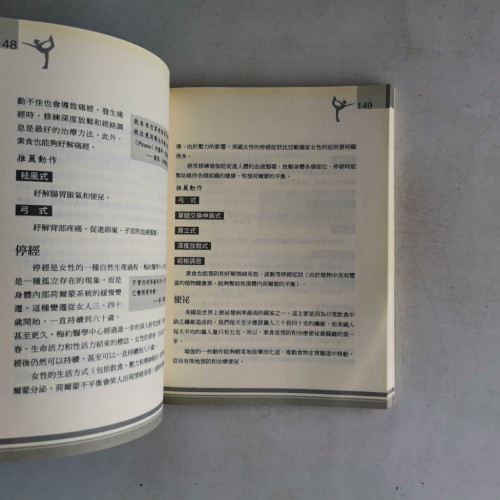 48
動不佳也會導致痛經，發生痛
經時，修練深度放鬆和經絡調
息是最好的治療方法，此外，
素食也能夠紓解痛經。
推薦動作
祛風式
紓解腸胃脹氣和便祕。
弓式
紓解背部疼痛，促進卵巢、子宮的血液循環。
停經
停經是女性的一種自然生理過程，梅約醫學
是一種孤立存在的現象，而是
身體內部荷爾蒙系統的緩慢變
遷，這種變遷從女人三、四十
歲開始，一直持續到六十歲，
甚至更久。梅約醫學中心經過進一步的深入研究
春、生命活力和性活力結束的標誌，女性的青春、
經後仍然可以持續，甚至可以一直持續到六十歲
女性的生活方式（包括飲食、壓力和
爾蒙分泌，荷爾蒙不平衡會使人出現情緒
149
導，由於壓力的影響，美國女性的停經症狀比亞歐國家女性的症狀要明顯
得多。
經常修練瑜伽能促進人體的血液循環，放鬆身體各個部位，停經時能
幫助維持各個組織的健康，恢復荷爾蒙的平衡。
推薦動作
弓式
單腿交換伸展式
肩立式
深度放鬆式
經絡調息
素食也能預防和紓解情緒易怒、盜熱等停經症狀（由於植物中含有豐
富的植物雌激素，能夠幫助恢復體內荷爾蒙的平衡）。
便祕
美國是世界上便祕發病率最高的國家之一，這主要是因為日常飲食中
缺乏纖維造成的。我們每天至少應該攝入三十到四十克的纖維，而美國人
每天平均的攝入量只有五克。所以，素食是預防和治療便祕最關鍵的第一
步。
瑜伽的一些動作能夠輕柔地按摩消化道，推動食物在胃腸道中移動，
從而有效地預防和治療便祕。